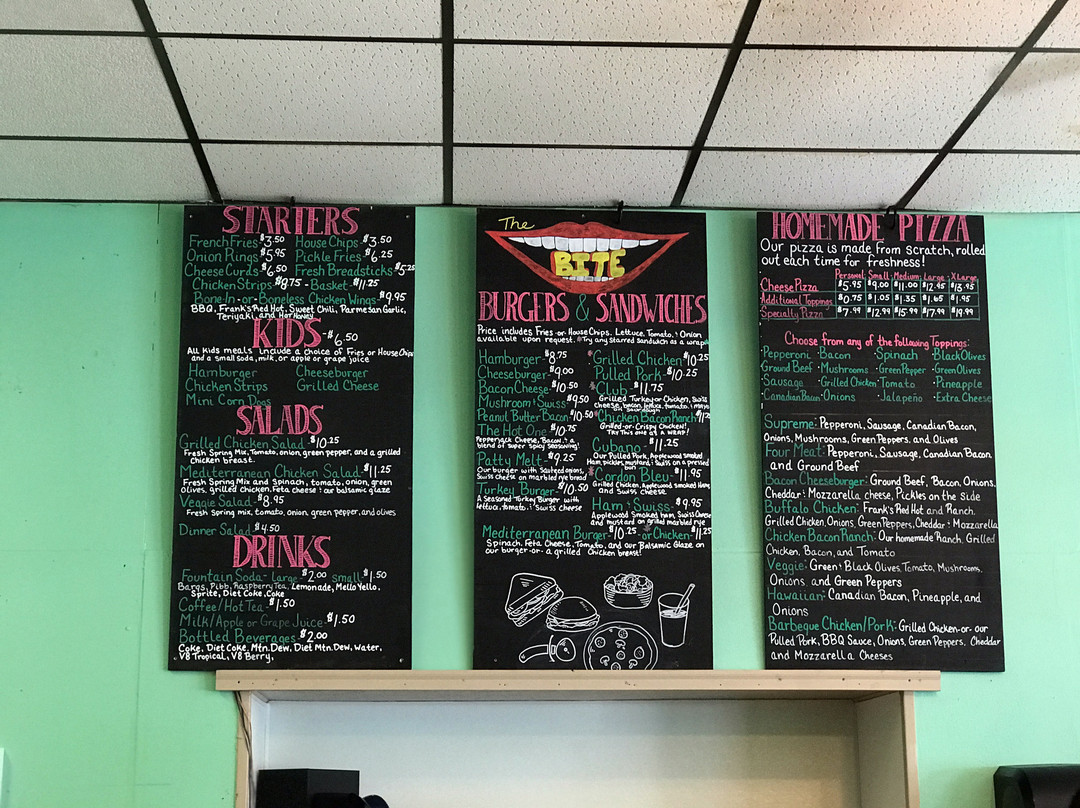 STARTERS
French Fries-$3.50 House Chips-$3.50
Onion Rings-$5.95 Pickle Fries-$6.25
Cheese Curds-$6.50 Fresh Breadsticks-$5.25
Chicken Strips-$8.75 - Basket-$11.25
Bone-In-or-Boneless Chicken Wings-$9.95
BBQ, Frank's Red Hot, Sweet Chili, Parmesan Garlic,
Teriyaki, and Hot Honey
KIDS-$6.50
All kids meals include a choice of Fries or House Chips
and a small soda, milk, or apple or grape juice
Hamburger Cheeseburger
Chicken Strips Grilled Cheese
Mini Corn Dogs
SALADS
Grilled Chicken Salad-$10.25
Fresh Spring Mix, Tomato, onion, green pepper, and a grilled
chicken breast.
Mediterranean Chicken Salad-$11.25
Fresh Spring Mix and Spinach, tomato, onion, green
olives, grilled chicken, Feta cheese & our balsamic glaze
Veggie Salad-$8.95
Fresh Spring mix, tomato, onion, green pepper, and olives
Dinner Salad-$4.50
DRINKS
Fountain Soda-Large-$2.00 small-$1.50
Barqs, Pibb, Raspberry Tea, Lemonade, Mello Yello,
Sprite, Diet Coke, Coke
Coffee/Hot Tea-$1.50
Milk/Apple or Grape Juice-$1.50
Bottled Beverages-$2.00
Coke, Diet Coke, Mtn. Dew, Diet Mtn. Dew, Water,
V8 Tropical, V8 Berry,
The
BITE
BURGERS & SANDWICHES
Price includes Fries-or-House Chips. Lettuce, Tomato, & Onion
available upon request. *Try any starred sandwich as a wrap*
Hamburger-$8.75
Cheeseburger-$9.00
Bacon Cheese-$10.50
Mushroom & Swiss-$9.50
Peanut Butter Bacon-$10.50
The Hot One-$10.75
Pepperjack Cheese, Bacon, & a
blend of super spicy seasoning!
Patty Melt-$9.25
Our burger with sauteed onions,
Swiss cheese on marbled rye bread
Turkey Burger-$10.50
A seasoned Turkey Burger with
lettuce, tomato, & Swiss cheese
*Grilled Chicken-$10.25
Pulled Pork-$10.25
*Club-$11.75
Grilled Turkey or Chicken, Swiss
cheese, bacon, lettuce, tomato, & mayo
on sourdough
*Chicken Bacon Ranch-$11.25
Grilled-or-Crispy Chicken!
Try this one as a WRAP!
Cubano-$11.25
Our Pulled Pork, Applewood smoked
Ham, pickles, mustard, & Swiss on a pressed
bun
*Cordon Bleu-$11.95
Grilled Chicken, Applewood smoked Ham,
and Swiss cheese
Ham & Swiss-$9.95
Applewood Smoked ham, Swiss Cheese
and mustard on grilled marbled rye
Mediterranean Burger-$10.25-or Chicken-$11.25
Spinach, Feta Cheese, Tomato, and our Balsamic Glaze on
our burger-or-a grilled chicken breast!
HOMEMADE PIZZA
Our pizza is made from scratch, rolled
out each time for freshness!
Personal Small Medium Large X Large
Cheese Pizza $5.95 $9.00 $11.00 $12.95 $13.95
Additional Toppings $0.75 $1.05 $1.35 $1.65 $1.95
Specialty Pizza $7.99 $12.99 $15.99 $17.99 $19.99
Choose from any of the following Toppings:
·Pepperoni ·Bacon ·Spinach ·Black Olives
·Ground Beef ·Mushrooms ·Green Pepper ·Green Olives
·Sausage ·Grilled Chicken ·Tomato ·Pineapple
·Canadian Bacon ·Onions ·Jalapeño ·Extra Cheese
Supreme: Pepperoni, Sausage, Canadian Bacon,
Onions, Mushrooms, Green Peppers, and Olives
Four Meat: Pepperoni, Sausage, Canadian Bacon
and Ground Beef
Bacon Cheeseburger: Ground Beef, Bacon, Onions,
Cheddar & Mozzarella cheese, Pickles on the side
Buffalo Chicken: Frank's Red Hot and Ranch,
Grilled Chicken, Onions, Green Peppers, Cheddar & Mozzarella
Chicken Bacon Ranch: Our homemade Ranch, Grilled
Chicken, Bacon, and Tomato
Veggie: Green & Black Olives, Tomato, Mushrooms,
Onions, and Green Peppers
Hawaiian: Canadian Bacon, Pineapple, and
Onions
Barbeque Chicken/Pork: Grilled Chicken-or-our
Pulled Pork, BBQ Sauce, Onions, Green Peppers, Cheddar
and Mozzarella Cheeses